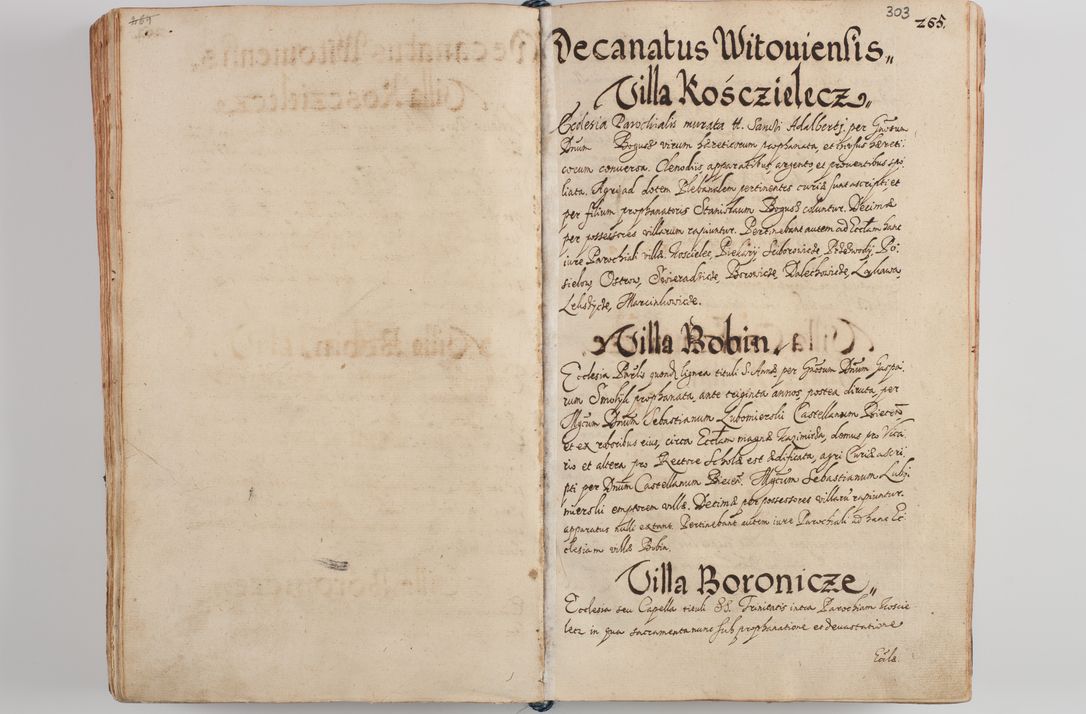 303
265.
Decanatus Witouiensis„
Villa Kośczielecz„
Ecclesia Parochialis murata tt. Sancti Adalbertj. per Gnosum
Dnum Bogusz virum hæreticorum prophanata, et in usus hæreti
corum conuersa. Clenodijs, apparatibus, argento, et prouentibus spo
liata. Agri ad dotem Plebanalem pertinentes curiæ sunt ascripti, et
per filium prophanatoris Stanislaum Bogusz coluntur. Decimæ
per possessores villarum rapiuntur. Pertinebant autem ad Ecclam hanc
iure Parochiali villæ. Koscielec, Piekary
Ostrow, Boronicze, Dalechowicze, Lekawa,
Marcinkowicze.
Villa Bobin.
Ecclesia Parlis quond lignea tituli S. Annæ, per Gnosum Dnum Gaspa,
rum Smolik prophanata, ante triginta annos postea diruta, per
Mgcum Dnum Sebastianum Lubomierski Castellanum Biecen̄,
et ex roboribus eius, circa Ecclam magnæ Kazimirza, domus pro Vica,
rio et altera pro Rectore Scholæ est ædificata, agri Curiæ ascri
pti per Dnum Castellanum Biecen̄. Mgcum Sebastianum Lubo
mierski emptorem villæ. Decimæ per possessores villarū rapiuntur.
apparatus nulli extant. Pertinebant autem iure Parochiali ad hanc Ec
clesiam villæ Bobin.
Villa Boronicze„
Ecclesia seu Capella tituli SS. Trinitatis intra Parochiam Koscie
lecz in qua sacramenta nunc sub prophanatione et deuastatione
Eccle.